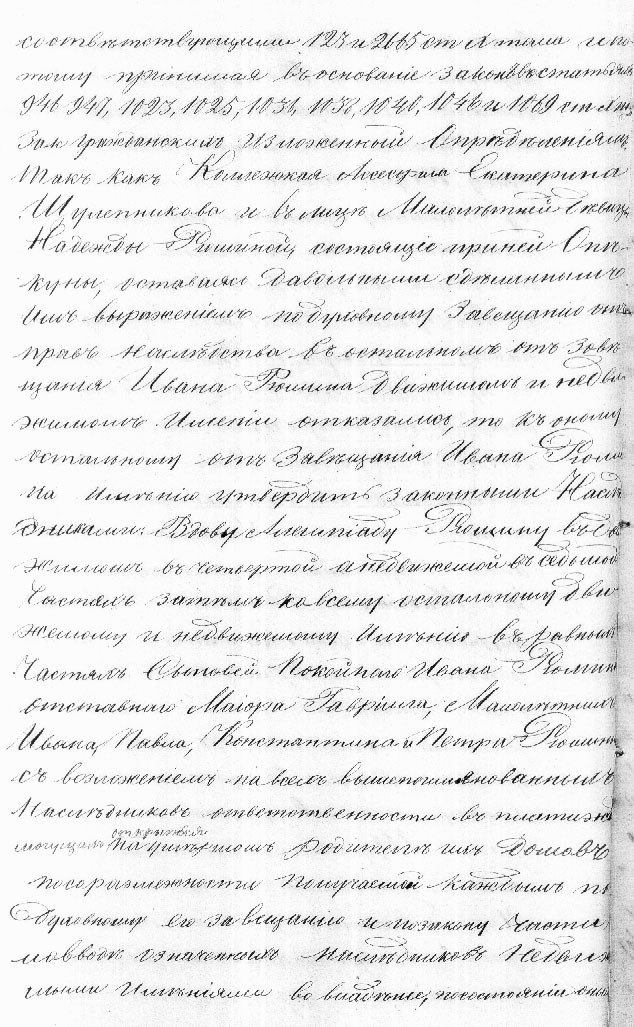 соотвѣтствующими 123 и 2665 ст. X тома и по
тому принимая въ основаніе законъ въ статьяхъ
946 947, 1023, 1025, 1031, 1038, 1040, 1046 и 1069 ст. X т.
Зак гражданскимъ изложенный Опредѣленіямъ
Такъ какъ Коллежская Асесорша Екатерина
Шулепникова и въ лицѣ Малолѣтней дѣвицы
Надежды Рюминой, состоящее при ней Опѣ-
куны, оставаясь давольными сдѣланнымъ
имъ выраженіемъ по духовному Завещанію отъ
правъ наслѣдства въ остальномъ отъ Завѣ
щанія Ивана Рюмина движимомъ и недви
жимомъ имѣніи отказались, то къ оному
остальному отъ Завѣщанія Ивана Рюми
на имѣнію утвердить законными Наслѣ
дниками: Вдову Алемпіаду Рюмину въ дви
жимомъ въ четвертой а недвижемой въ седьмой
Частяхъ затѣмъ ко всему остальному дви
жемому и недвижемому Имѣнію въ равныхъ
Частяхъ Сыновей покойнаго Ивана Рюмина
отставнаго Маіора Гавріила, Малолѣтныхъ
Ивана, Павла, Константина и Петра Рюминыхъ
съ возложеніемъ на всехъ вышепоимянованныхъ
Наслѣдниковъ отвѣтственности въ платижѣ
открытся
могущихъ на умершомъ родителѣ ихъ Долговъ
по соразмѣжности получаемой каждымъ по
Духовному его завещанію и по закону Части
о вводѣ означенныхъ наслѣдниковъ недвиж
имыми Имѣніями во владѣніе, по состояніи